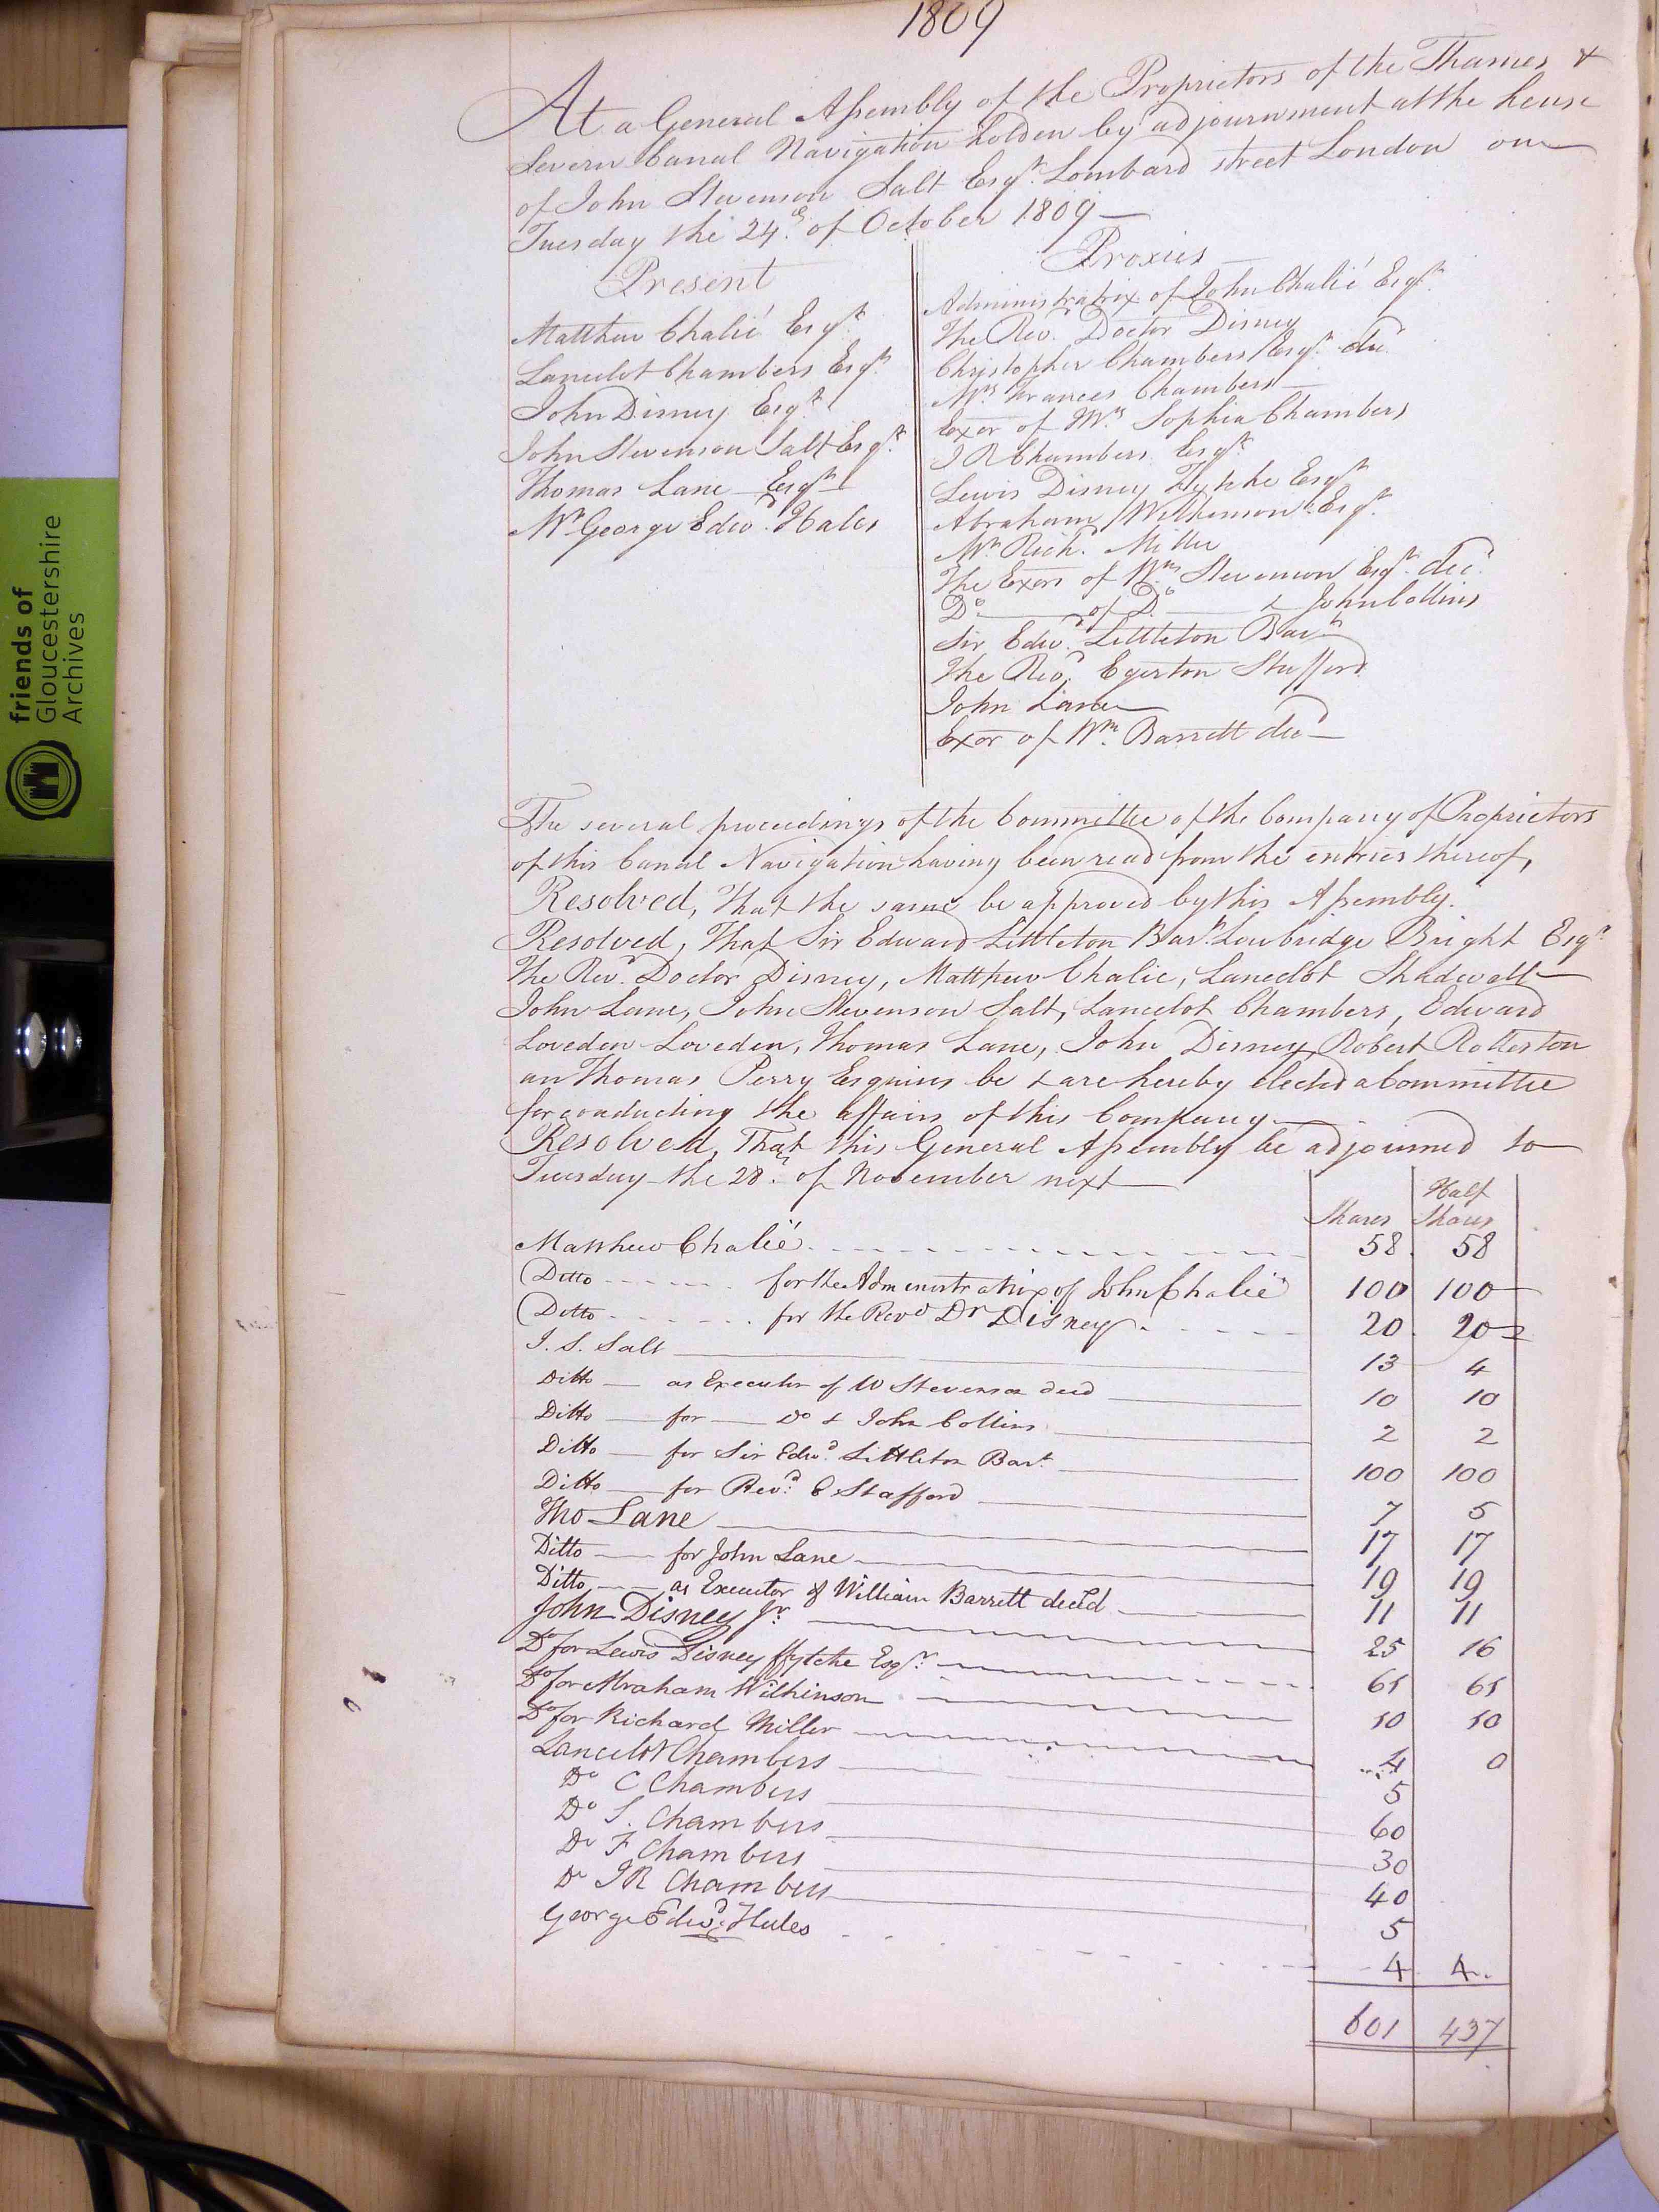 1809
At a General Assembly of the Proprietors of the Thames &
Severn Canal Navigation holden by adjournment at the house
of John Stevenson Salt Esqr. Lombard street London on
Tuesday the 24th. of October 1809
Present
Matthew Chalié Esqr.
Lancelot Chambers Esqr.
John Disney Esqr.
John Stevenson Salt Esqr.
Thomas Lane Esqr
Mr George Edwd. Hales
Proxies
Administratrix of John Chalié Esqr.
The Revd. Doctor Disney
Christopher Chambers Esqr. decd.
Mrs Frances Chambers
Exor of Mrs Sophia Chambers
J R Chambers Esqr.
Lewis Disney Fytche Esqr
Abraham Wilkinson Esqr.
Mr Richd. Miller
The Exors of Wm Stevenson Esqr. decd.
Do. of Do. & John Collins
Sir Edwd. Littleton Bart
The Revd. Egerton Stafford
John Lane
Exor of Wm. Barrett decd
The several proceedings of the Committee of the Company of Proprietors
of this Canal Navigation having been read from the entries thereof,
Resolved, That the same be approved by this Assembly.
Resolved, That Sir Edward Littleton Bart. Lowbridge Bright Esqr
The Revd. Doctor Disney, Matthew Chalie, Lancelot Shadwell
John Lane, John Stevenson Salt, Lancelot Chambers, Edward
Loveden Loveden, Thomas Lane, John Disney, Robert Rolleston
an Thomas Perry Esquires be & are hereby elected a Committee
for conducting the affairs of this Company
Resolved, That this General Assembly be adjourned to
Tuesday the 28th. of November next
Shares Half Shares
Matthew Chalié 58 58
Ditto for the Administratrix of John Chalié 100 100
Ditto for the Revd Dr Disney 20 20
J. S. Salt 13 4
Ditto as Executor of W Stevenson decd 10 10
Ditto for Do & John Collins 2 2
Ditto for Sir Edwd. Littleton Bart 100 100
Ditto for Revd. E Stafford 7 5
Tho Lane 17 17
Ditto for John Lane 19 19
Ditto as Executor of William Barrett decd 11 11
John Disney Jr. 25 16
Do for Lewis Disney ffytche Esqr. 65 65
Do for Abraham Wilkinson 10 10
Do for Richard Miller 4 0
Lancelot Chambers 5
Do C Chambers 60
Do S. Chambers 30
Do F Chambers 40
Do J R Chambers 5
George Edwd. Hales 4 4.
601 437
friends of
Gloucestershire
Archives